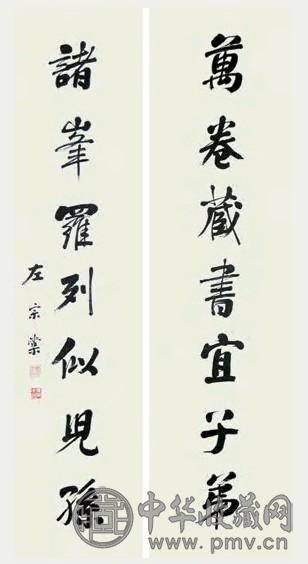 萬卷藏書宜子弟
諸峯羅列似兒孫
左宗棠
中华收藏网
www.pmv.cn